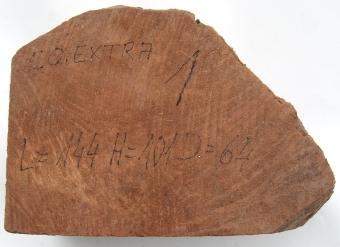 E.Q. EXTRA 1
L=144 H=101 D=62